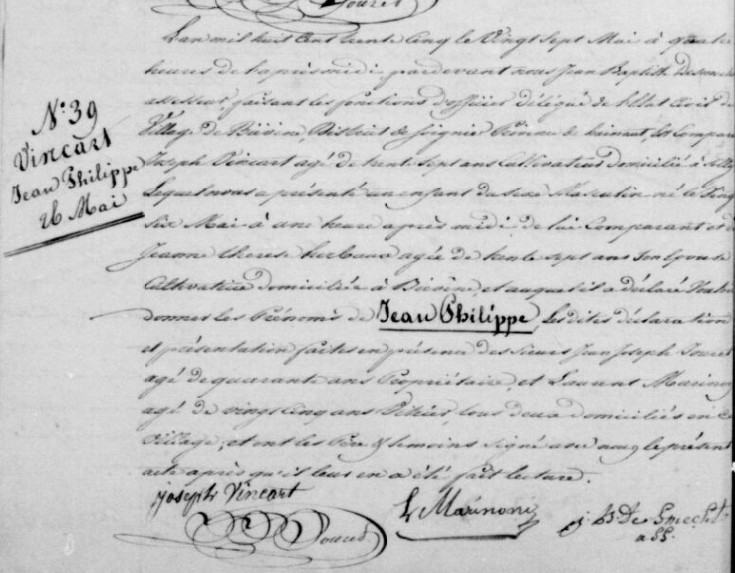 Douret
L'an mil huit cent trente Cinq le Vingt Sept Mai à quatre
heures de l'après midi, pardevant nous Jean Baptiste
assesseur, faisant les fonctions d'officier délégué de l'état Civil du
Village de District de Soignies Province de hainaut, Est Comparu
Joseph Vincart agé de trente Sept ans Cultivateur domicilié à
Lequel nous a présenté un enfant du Sexe Masculin né le Vingt
Six Mai à une heure après midi, de lui Comparant et de
Jeanne therese agée de trente sept ans Son Epouse
Cultivatrice domiciliée à et auquel il a déclaré Vouloir
donner les Prénoms de Jean Philippe, les dites déclaration
et présentation faites en présence des Sieurs Jean Joseph Douret
agé de quarante ans Propriétaire, et Laurent Marinoni
agé de vingt Cinq ans tous deux domiciliés en ce
Village, et ont les Père & temoins Signé avec nous le présent
acte après qu'il leur en a été fait lecture.
N° 39
Vincart
Jean Philippe
26 Mai
joseph Vincart
L Marinoni
Douret
j B De Smecht
ass.